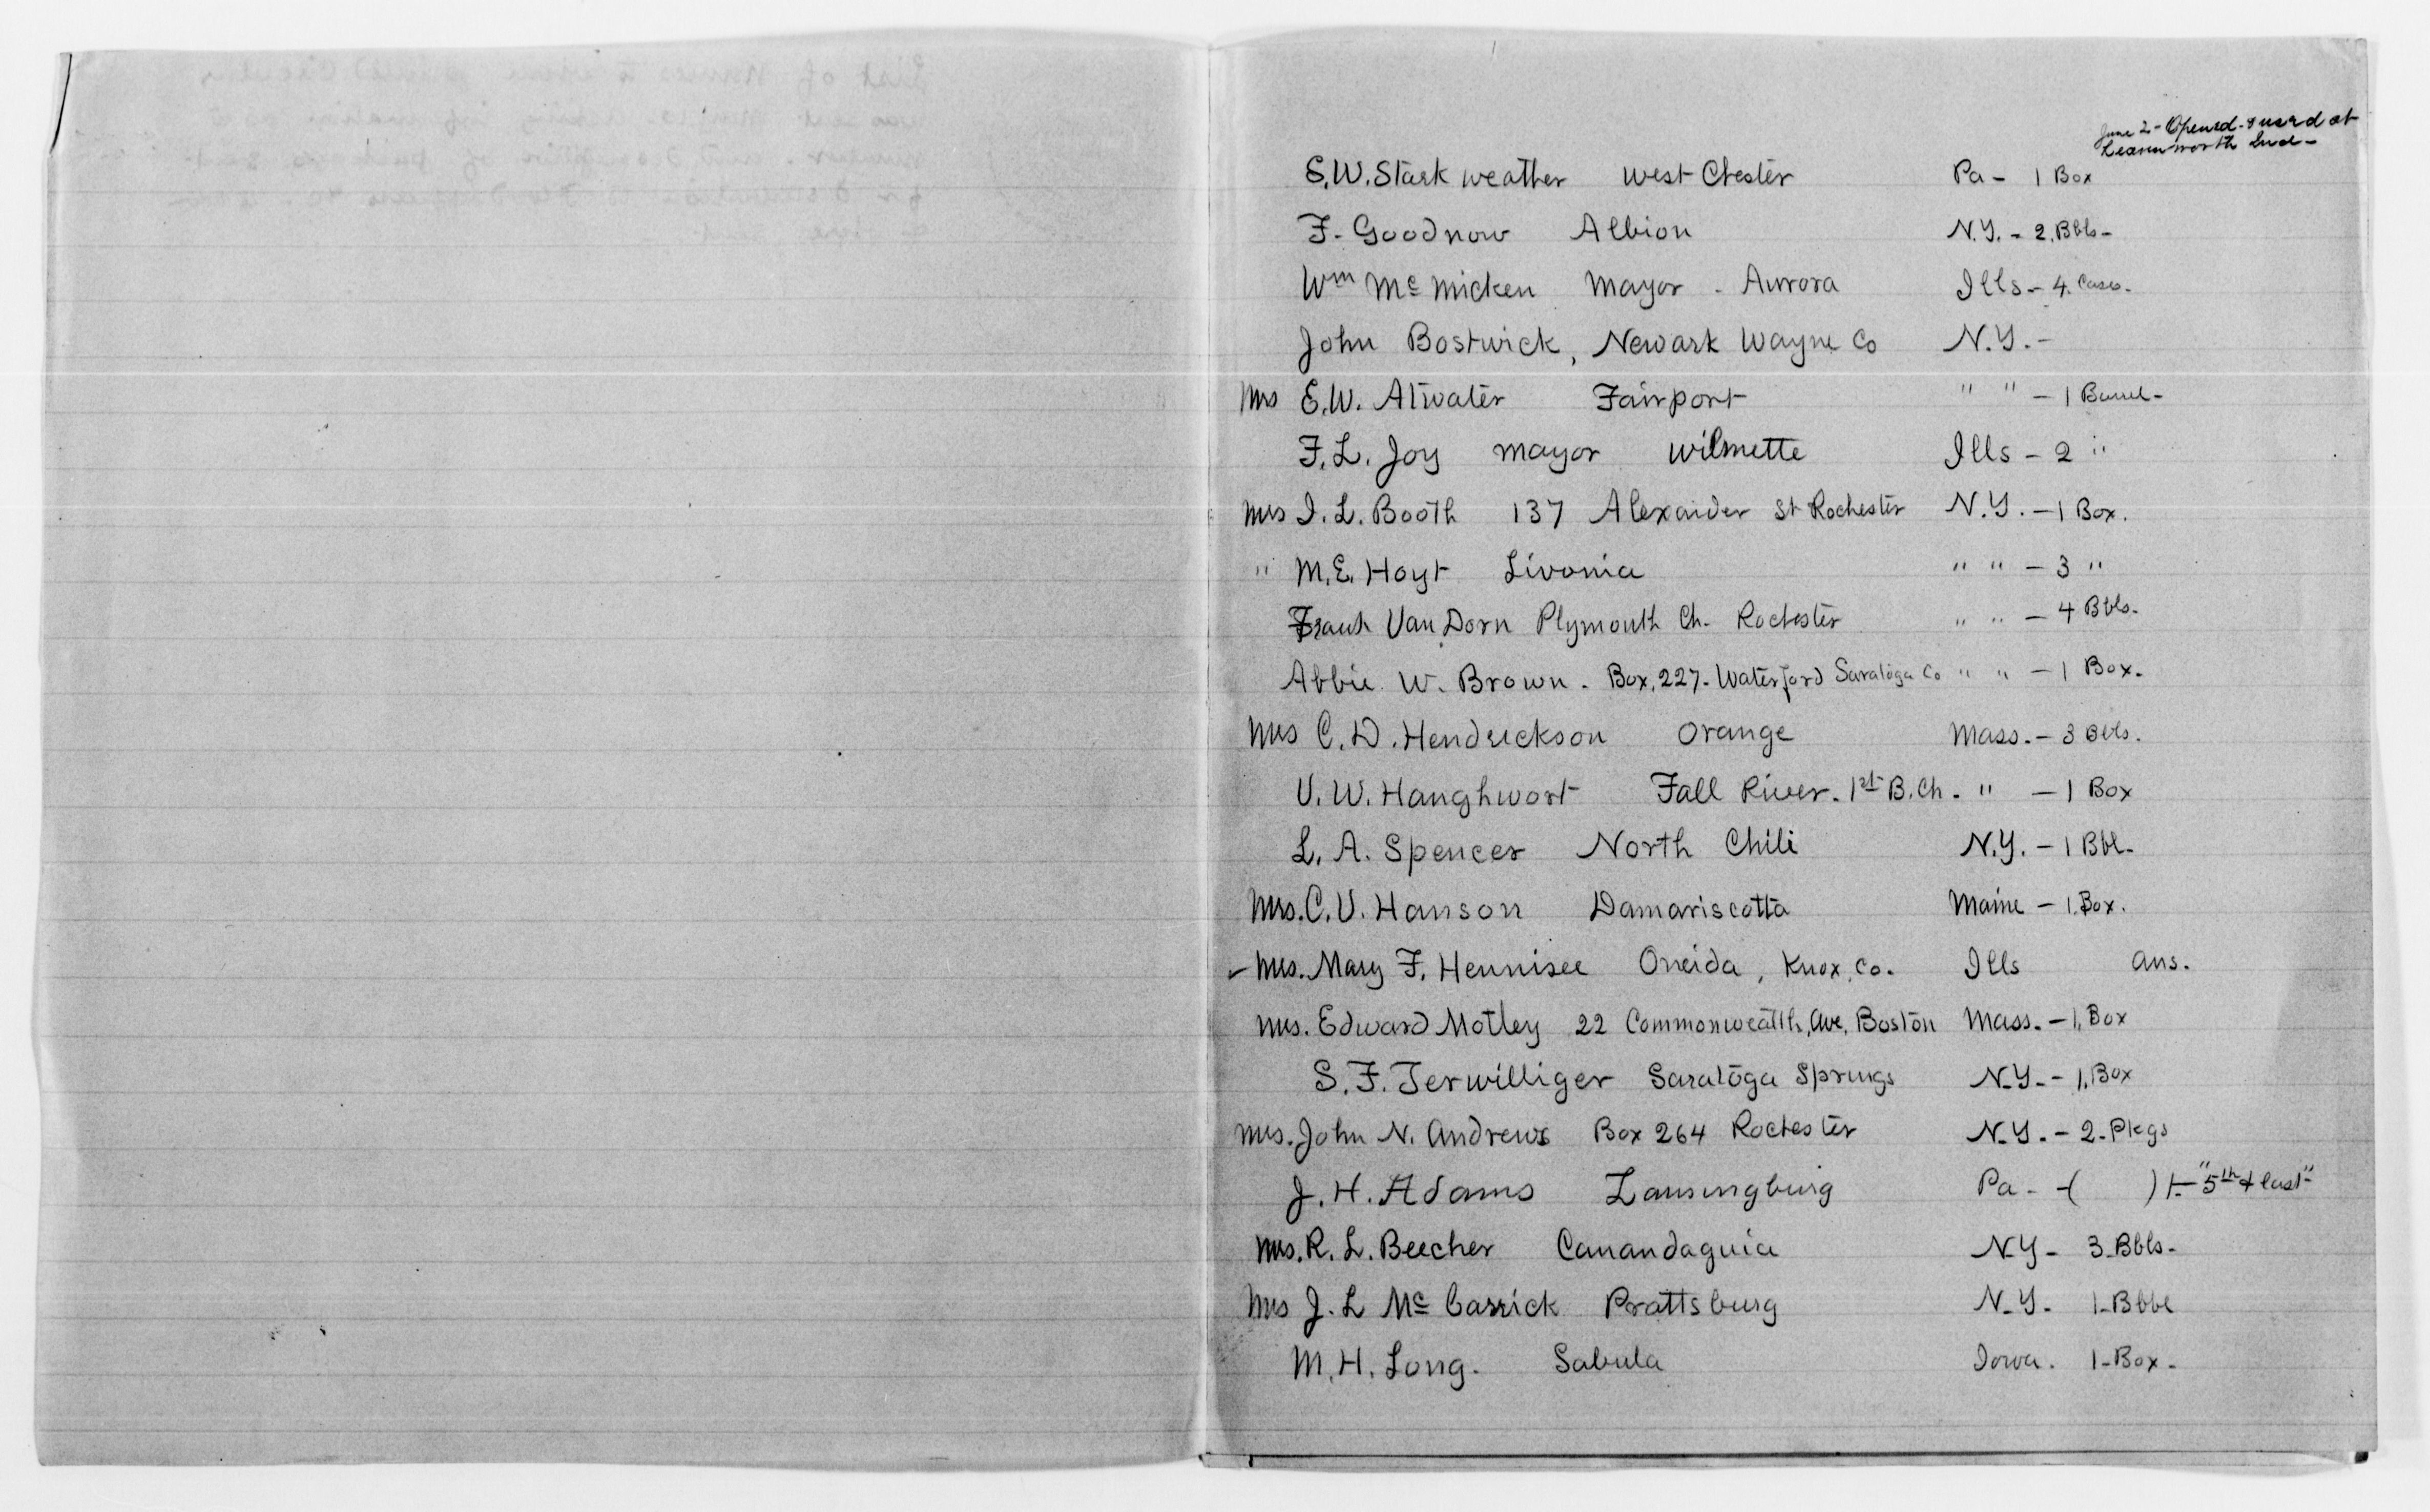 June 2 - Opened & used at
Leavenworth Ind -
S.W. Stark weather West Chester Pa - 1 Box
F. Goodnow Albion N.Y. - 2. Bbls -
Wm Mc Micken Mayor - Aurora Ills - 4. Cases -
John Bostwick, Newark Wayne Co N.Y. -
Mrs E.W. Atwater Fairport " " - 1 Barrel -
F.L. Joy Mayor Wilmette Ills - 2 "
Mrs I. L. Booth 137 Alexander St Rochester N.Y. - 1 Box.
" M.E. Hoyt Livonia " " - 3 "
Frank Van Dorn Plymouth Ch. Rochester " " - 4 Bbls.
Abbie W. Brown - Box, 227 - Waterford Saratoga Co " " - 1 Box.
Mrs C. D. Hendrickson Orange Mass. - 3 Bbls.
V. W. Hanghwort Fall River. 1st B. Ch. " - 1 Box
L. A. Spencer North Chili N.Y. - 1 Bbl.
Mrs. C. V. Hanson Damariscotta Maine - 1. Box.
✓ Mrs. Mary F. Hennisee Oneida, Knox, Co. Ills Ans.
Mrs. Edward Motley 22 Commonwealth, Ave, Boston Mass. - 1, Box
S. F. Terwilliger Saratoga Springs N.Y. - 1, Box
Mrs. John N. Andrews Box 264 Rochester N.Y. - 2. Pkgs
J. H. Adams Lansingburg Pa - - ( ) 1 - "5th & last"
Mrs. R. L. Beecher Canandaguia N.Y - 3 - Bbls -
Mrs J. L Mc Carrick Prattsburg N.Y. 1 - Bbbl
M. H. Long. Sabula Iowa. 1 - Box -